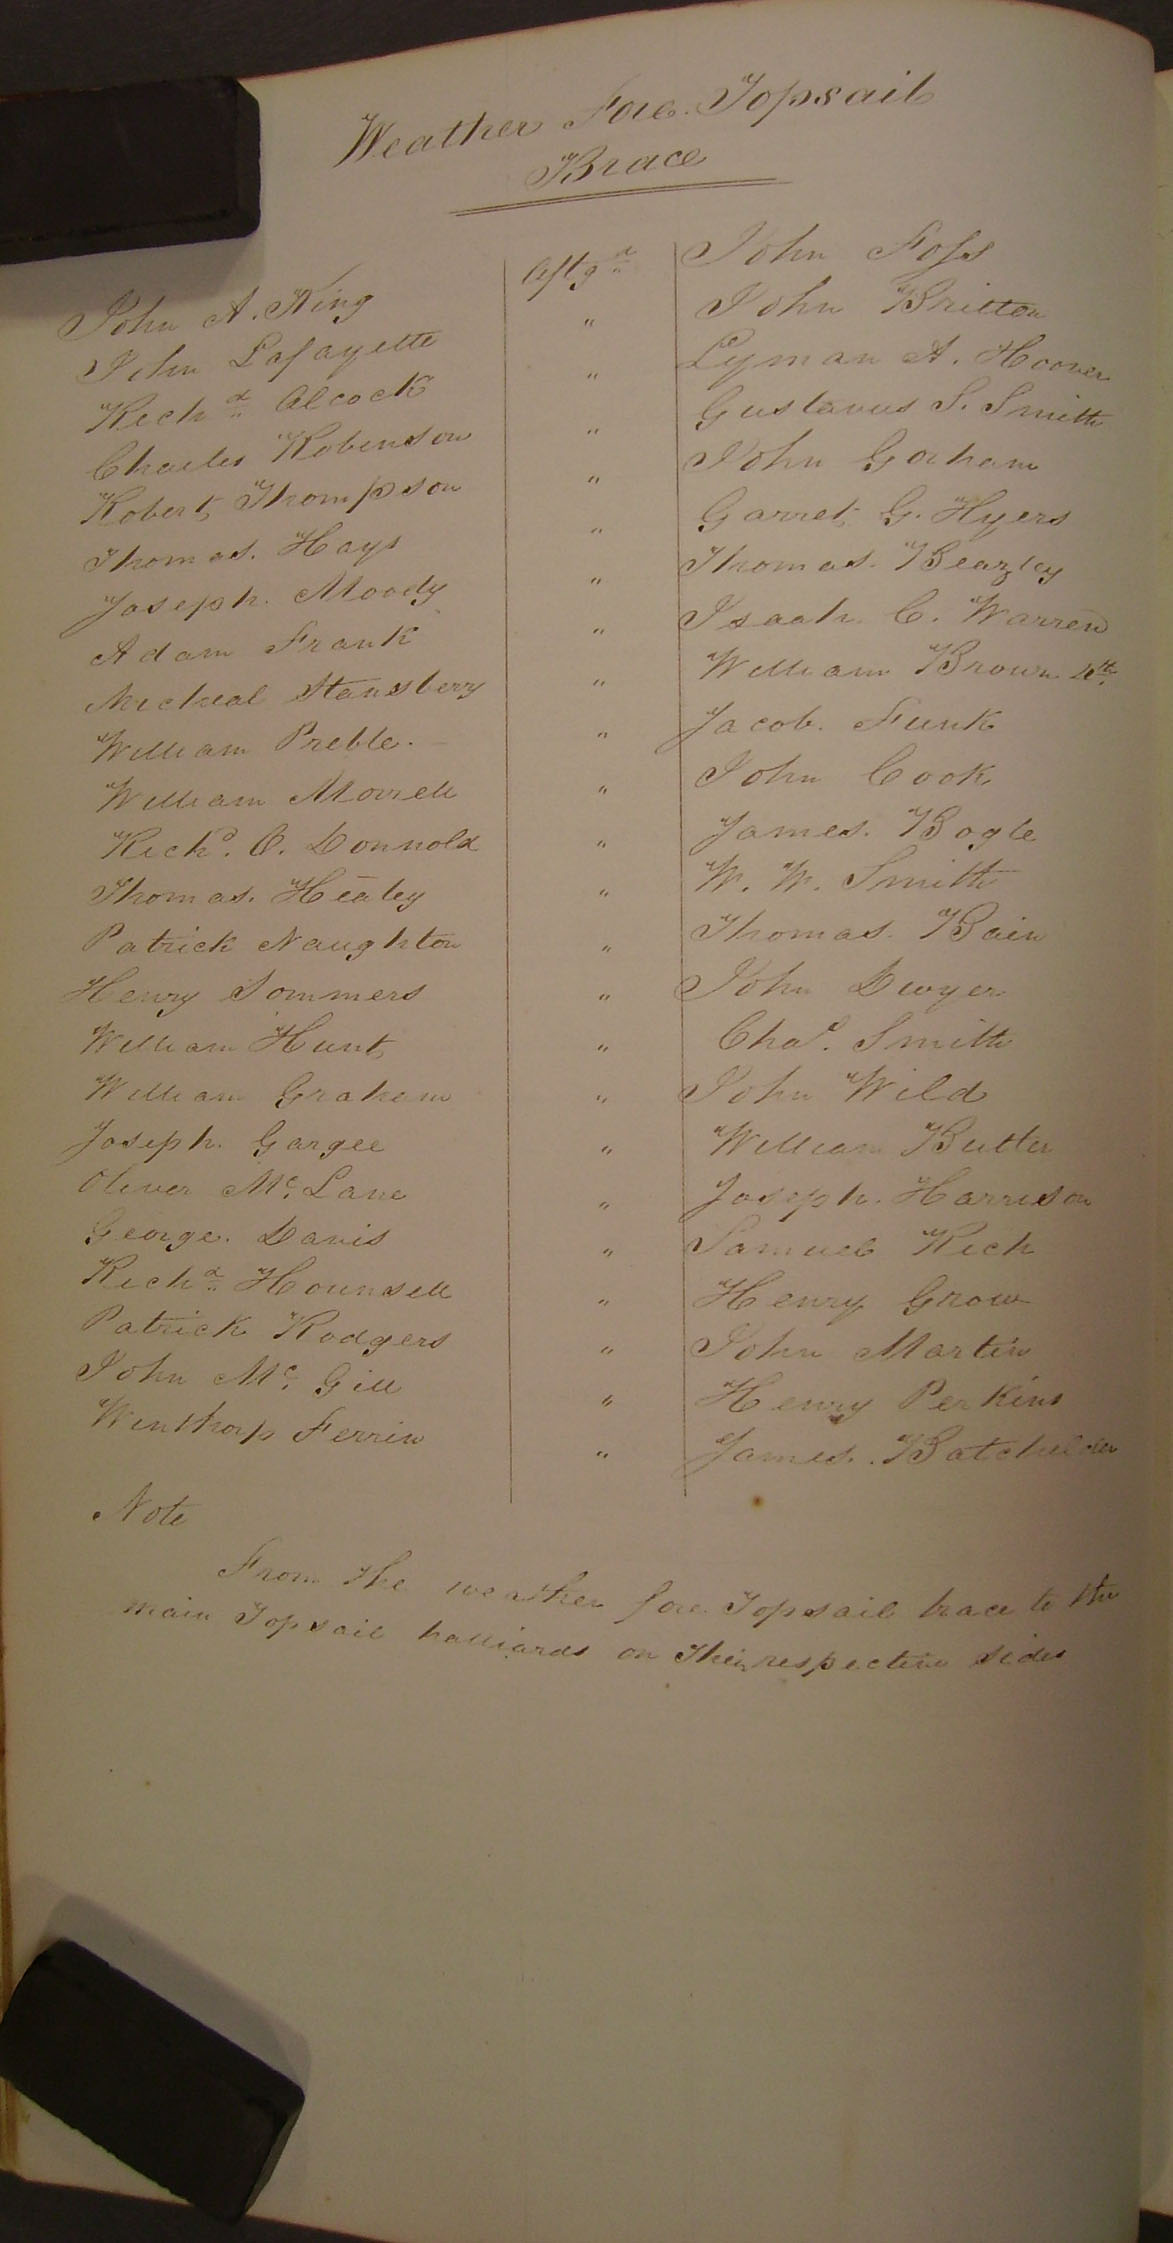 Weather Fore. Topsail
Brace
John A. King Aftgd John Foss
John Lafayette " John Britton
Richd Alcock " Lyman A. Hoover
Charles Robinson " Gustavus S. Smith
Robert Thompson " John Gorham
Thomas. Hays " Garret G. Hyers
Joseph. Moody " Thomas. Beazley
Adam Frank " Isaah C. Warren
Micheal Stansberry " William Brown 4th
William Preble. " Jacob. Funk
William Morrell " John Cook
Richd. C. Donnold " James. Bogle
Thomas. Healey " W. W. Smith
Patrick Naughton " Thomas. Bain
Henry Sommers " John Dwyer
William Hunt " Chas. Smith
William Graham " John Wild
Joseph. Gargee " William Butler
Oliver Mc. Lane " Joseph. Harrison
George. Davis " Samuel Rich
Richd Hounsell " Henry Grow
Patrick Rodgers " John Martin
John Mc. Gill " Henry Perkins
Winthorp Ferrin " James. Batchelder
Note
From the weather fore Topsail brace to the
main Topsail halliards on their respective sides